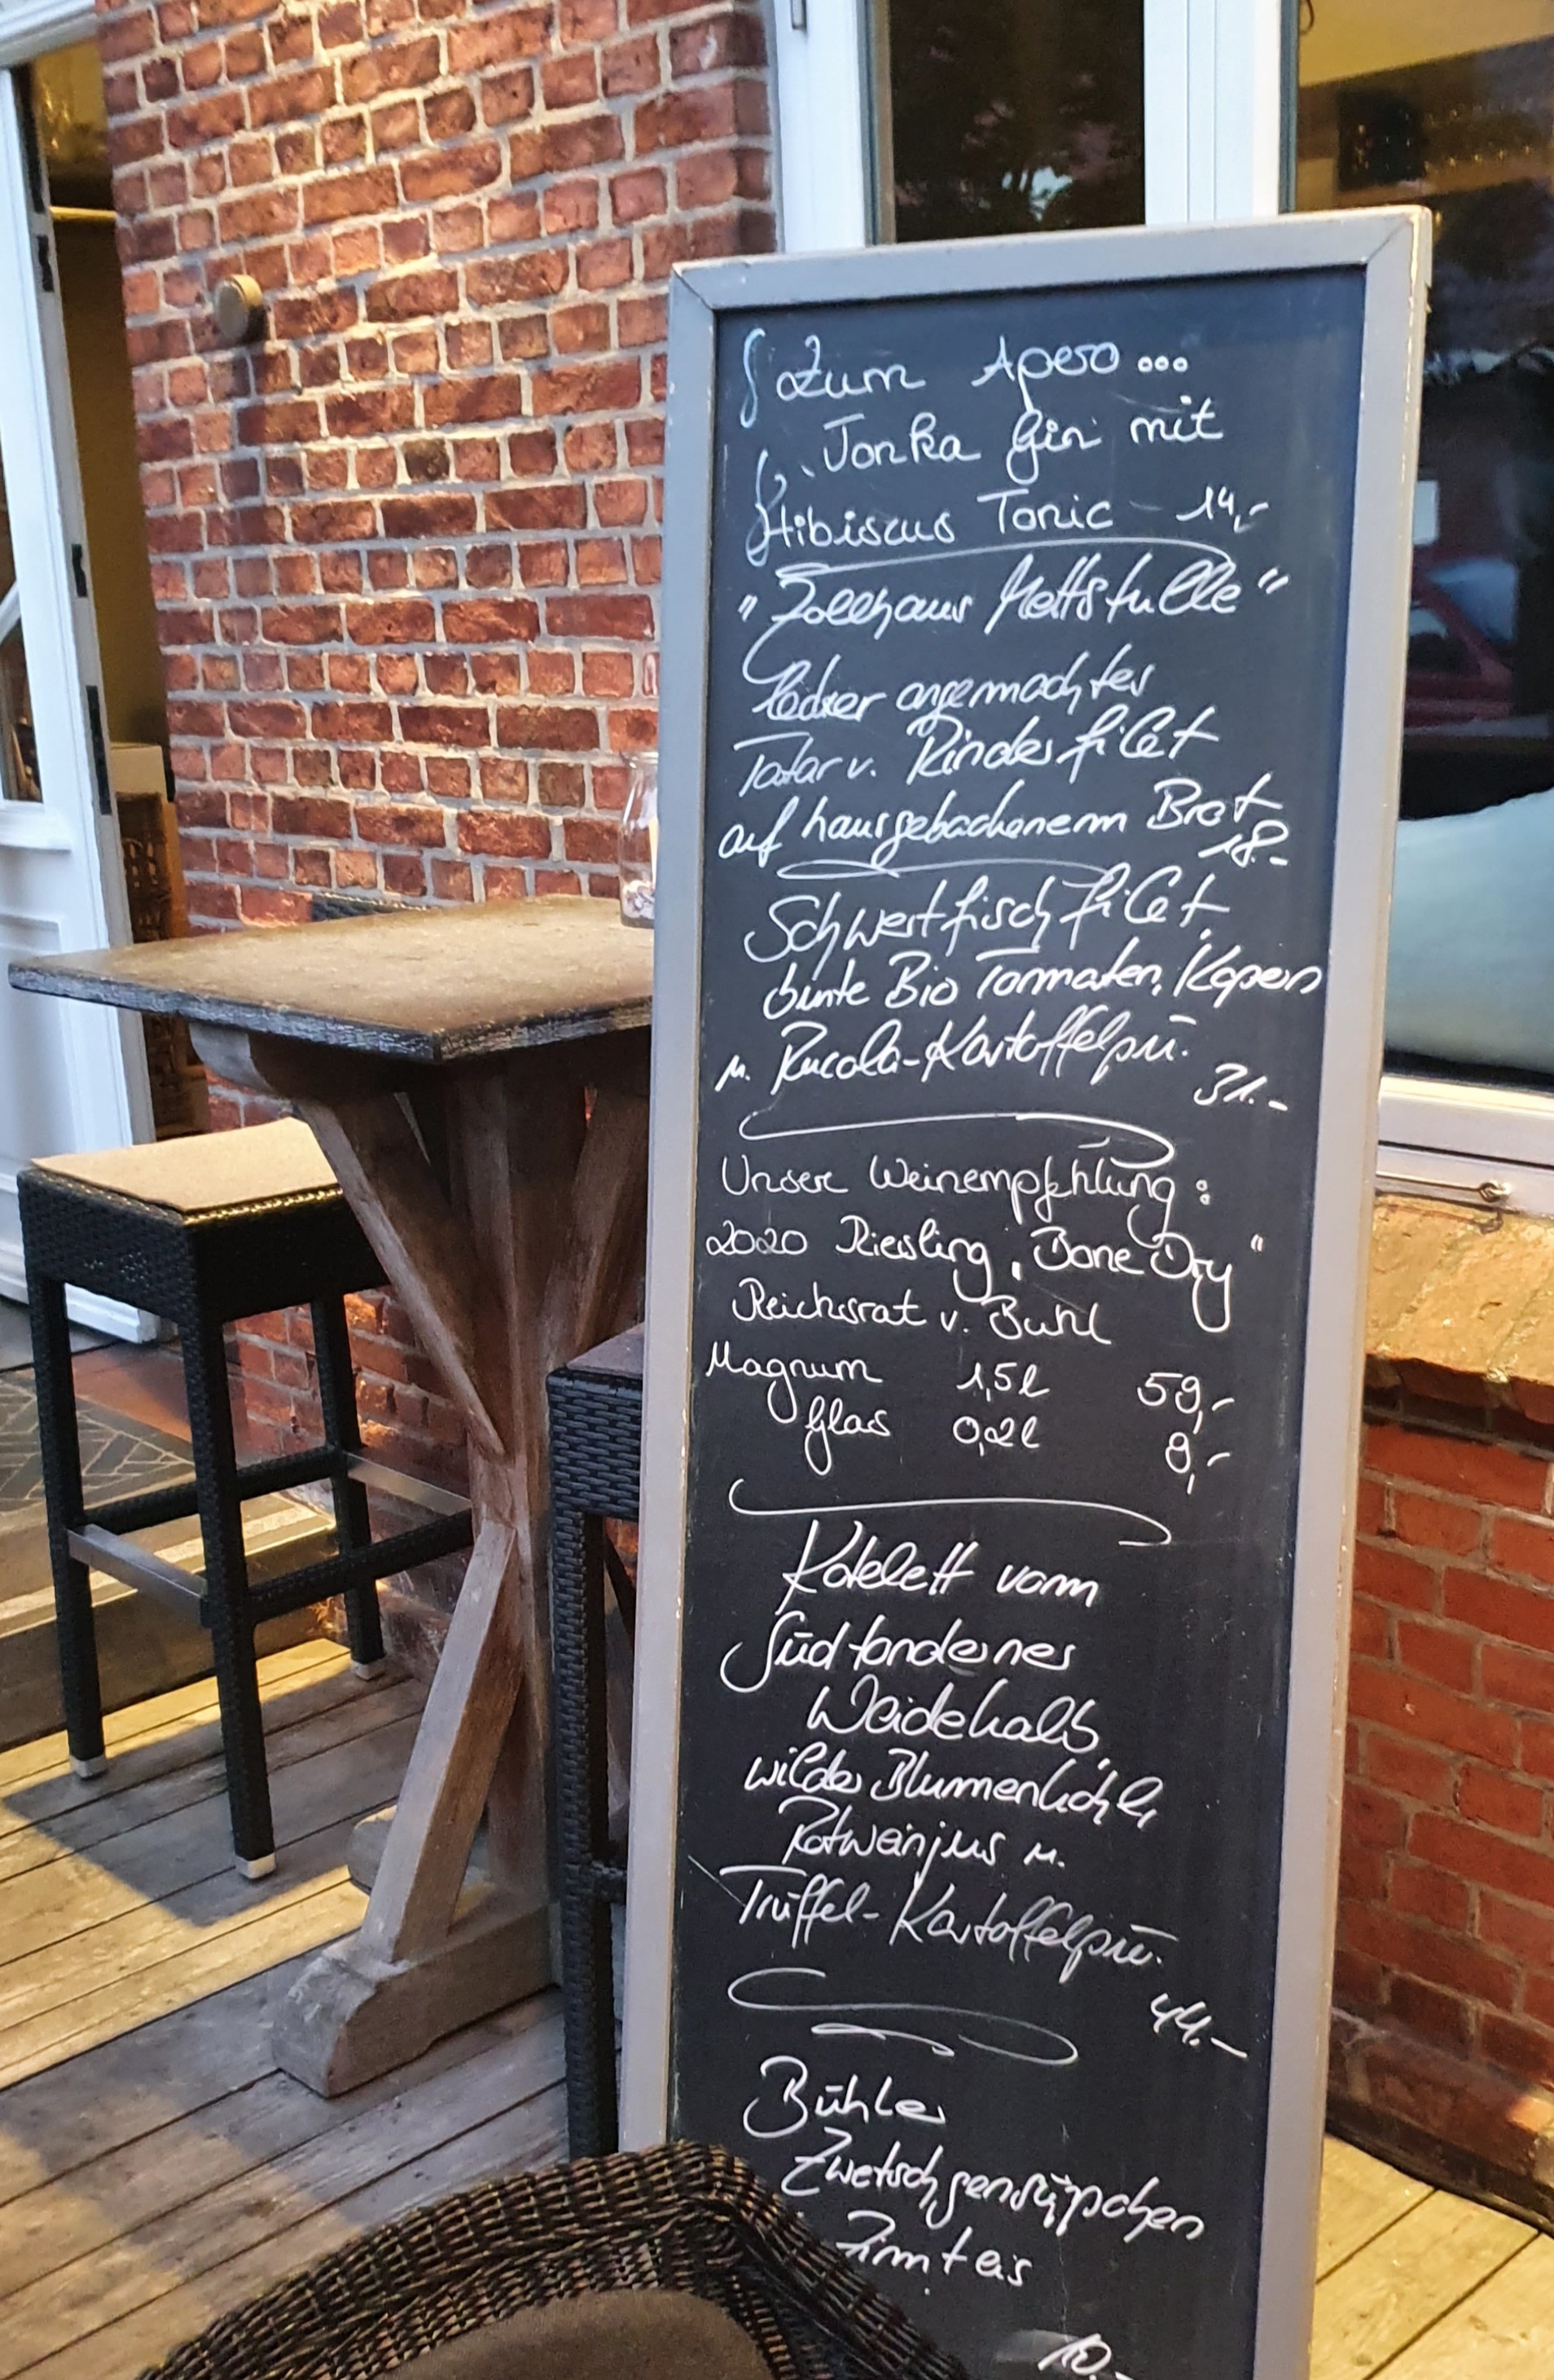 Zum Apero...
Tonka Gin mit
Hibiscus Tonic 14,-
"Zollhaus Mettstulle"
lecker angemachtes
Tatar v. Rinderfilet
auf hausgebackenem Brot
18.-
Schwertfischfilet,
bunte Bio Tomaten, Kapern
u. Rucola-Kartoffelpü.
31.-
Unsere Weinempfehlung:
2020 Riesling „Bone Dry"
Reichsrat v. Buhl
Magnum 1,5l 59,-
Glas 0,2l 9,-
Kotelett vom
Südtonderner
Weidekalb,
wilder Blumenkohl,
Rotweinjus u.
Trüffel-Kartoffelpü.
44.-
Bühler
Zwetschgensüppchen
Zimteis
10.-